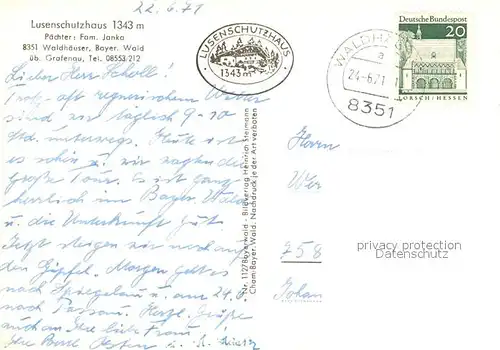 22.6.71
Lusenschutzhaus 1343 m
Pächter: Fam. Janka
8351 Waldhäuser, Bayer. Wald
üb. Grafenau, Tel. 08553/212
LUSENSCHUTZHAUS
1343 m
WALDHÄ
a
24.-6.71
8351
DEUTSCHE BUNDESPOST
20
LORSCH/HESSEN
Lieber Herr Scholl!
Trotz oft regnerischem Wetter
sind wir täglich 9-10
Std. unterwegs. Heute ist
es schön u. wir
große Tour. Es ist ganz
herrlich im Bayer. Wald
u. die Unterkunft gut.
Jetzt steigen wir noch auf
den Gipfel. Morgen geht es
nach Spiegelau u. am 24.6
nach Passau. Herzl. Grüße
auch an Ihre liebe Frau
Ihre
Nr. 1127 Bayerwald - Bildverlag Heinrich Stejmann
Cham/Bayer. Wald. Nachdruck je der Art verboten
Herrn
858
Johan
privacy protection
Datenschutz